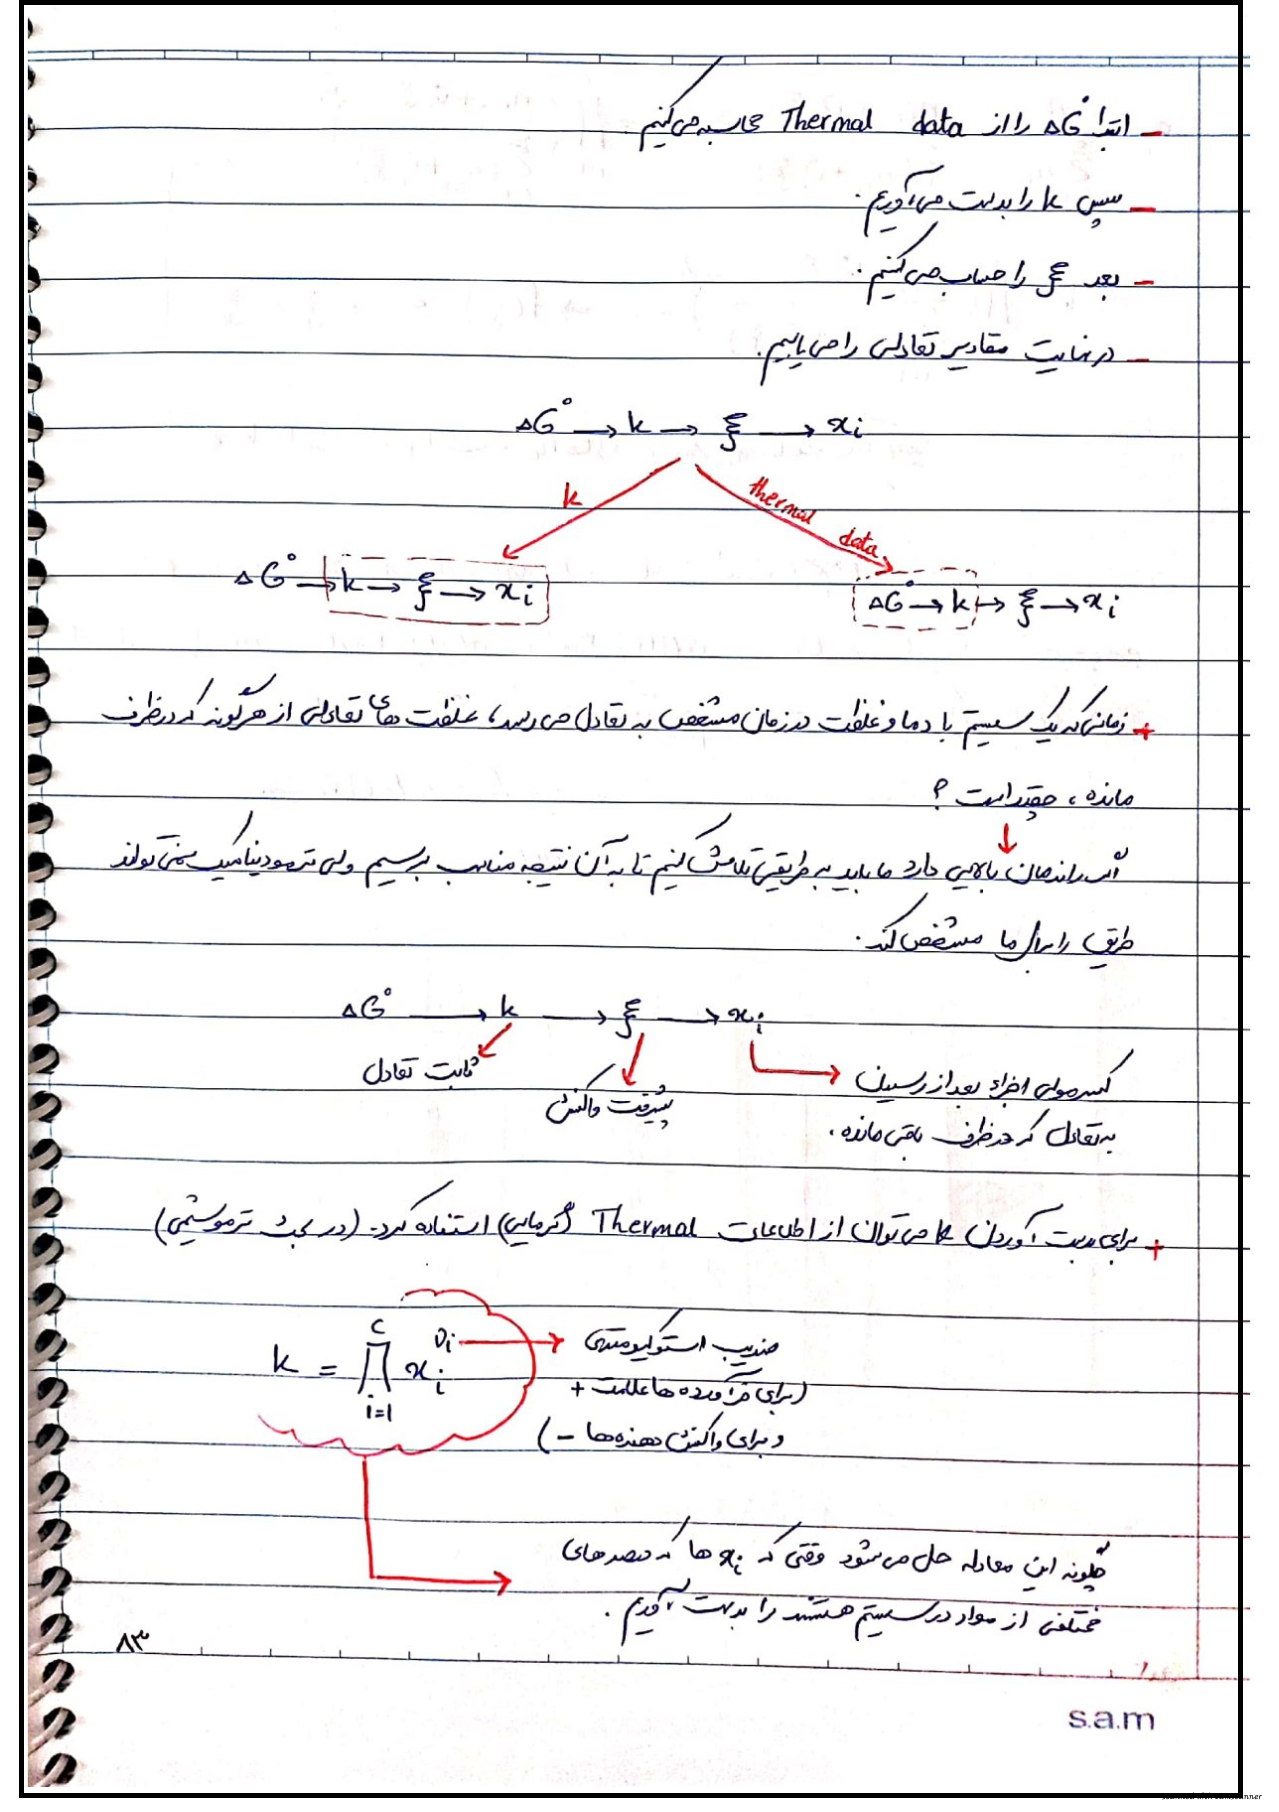 – ابتدا ΔG° را از Thermal data محاسبه می‌کنیم
– سپس k را بدست می‌آوریم.
– بعد ξ را حساب می‌کنیم.
– در نهایت مقادیر تعادلی را می‌یابیم.
ΔG° → k → ξ → xi
k
thermal data
ΔG° → k → ξ → xi
ΔG° → k → ξ → xi
+ زمانی که یک سیستم با دما و غلظت در زمان مشخص به تعادل می‌رسد، غلظت های تعادلی از هر گونه که در ظرف
مانده، چقدر است ؟
اگر راندمان بالایی دارد ما باید به طریقی تلاش کنیم تا به آن نتیجه مناسب برسیم ولی ترمودینامیک نمی‌تواند
طریق را برای ما مشخص کند.
ΔG° → k → ξ → xi
ثابت تعادل
پیشرفت واکنش
کسر مولی اجزاء بعد از رسیدن
به تعادل که در ظرف باقی مانده.
+ برای بدست آوردن k می‌توان از اطلاعات Thermal (گرمایی) استفاده کرد. (در بحث ترموشیمی)
k = ∏ᵢ₌₁ᶜ xᵢ^υᵢ
ضریب استوکیومتری
(برای فرآورده ها علامت +
و برای واکنش دهنده‌ها –)
چگونه این معادله حل می‌شود وقتی که xi ها که درصدهای
مختلفی از مواد در سیستم هستند را بدست آوریم.
۸۳
s.a.m